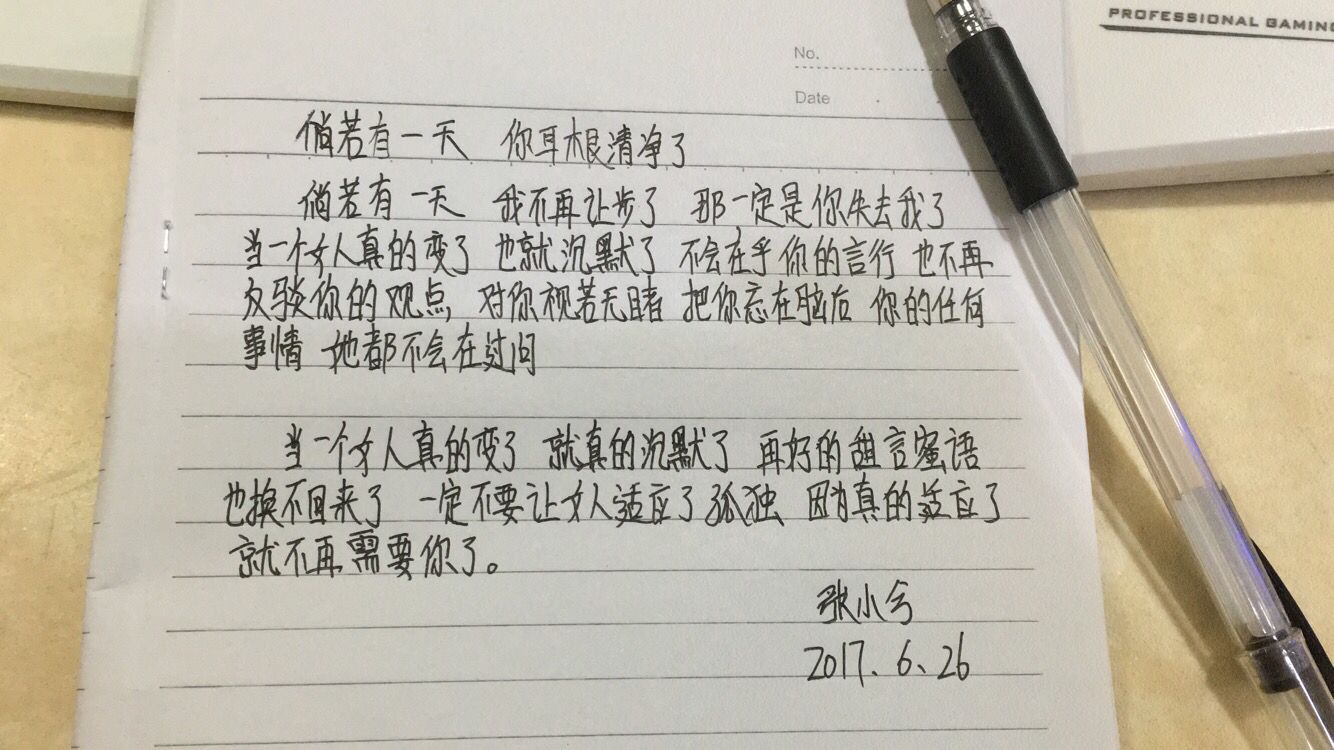 PROFESSIONAL GAMING
No.
Date
倘若有一天 你耳根清净了
倘若有一天 我不再让步了 那一定是你失去我了
当一个女人真的变了 也就沉默了 不会在乎你的言行 也不再
反驳你的观点 对你视若无睹 把你忘在脑后 你的任何
事情 她都不会在过问
当一个女人真的变了 就真的沉默了 再好的甜言蜜语
也换不回来了 一定不要让女人适应了孤独 因为真的适应了
就不再需要你了。
张小兮
2017.6.26